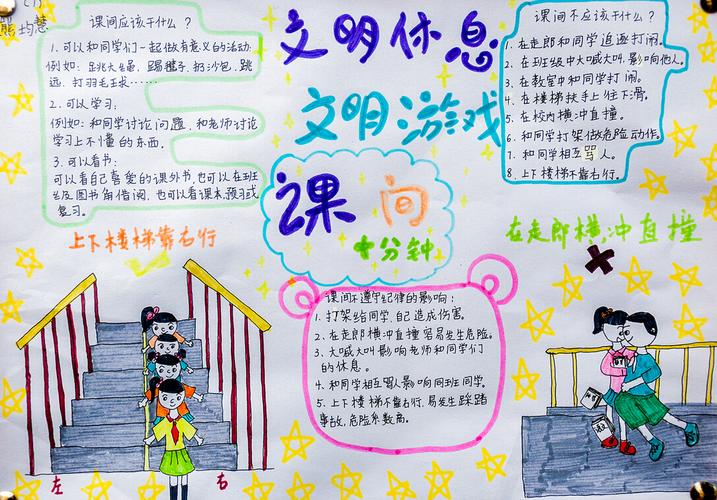 熊均慧
课间应该干什么？
1. 可以和同学们一起做有意义的活动.
例如：跳大绳、踢毽子、扔沙包、跳
远、打羽毛球……
2. 可以学习；
例如：和同学讨论问题，和老师讨论
学习上不懂的东西.
3. 可以看书；
可以看自己喜爱的课外书，也可以在班
级图书角借阅，也可以看课本，预习或
复习。
文明休息
文明游戏
课间
十分钟
课间不应该干什么？
1. 在走郎和同学追逐打闹。
2. 在班级中大喊大叫，影响他人。
3. 在教室中和同学打闹。
4. 在楼梯扶手上往下滑。
5. 在校内横冲直撞。
6. 和同学打架做危险动作。
7. 和同学相互骂人。
8. 上下楼梯不靠右行。
上下楼梯靠右行
左
右
课间不遵守纪律的影响：
1. 打架给同学、自己造成伤害。
2. 在走郎横冲直撞容易发生危险。
3. 大喊大叫影响老师和同学们
的休息。
4. 和同学相互骂人影响同班同学。
5. 上下楼梯不靠右行，易发生踩踏
事故，危险系数高。
在走郎横冲直撞